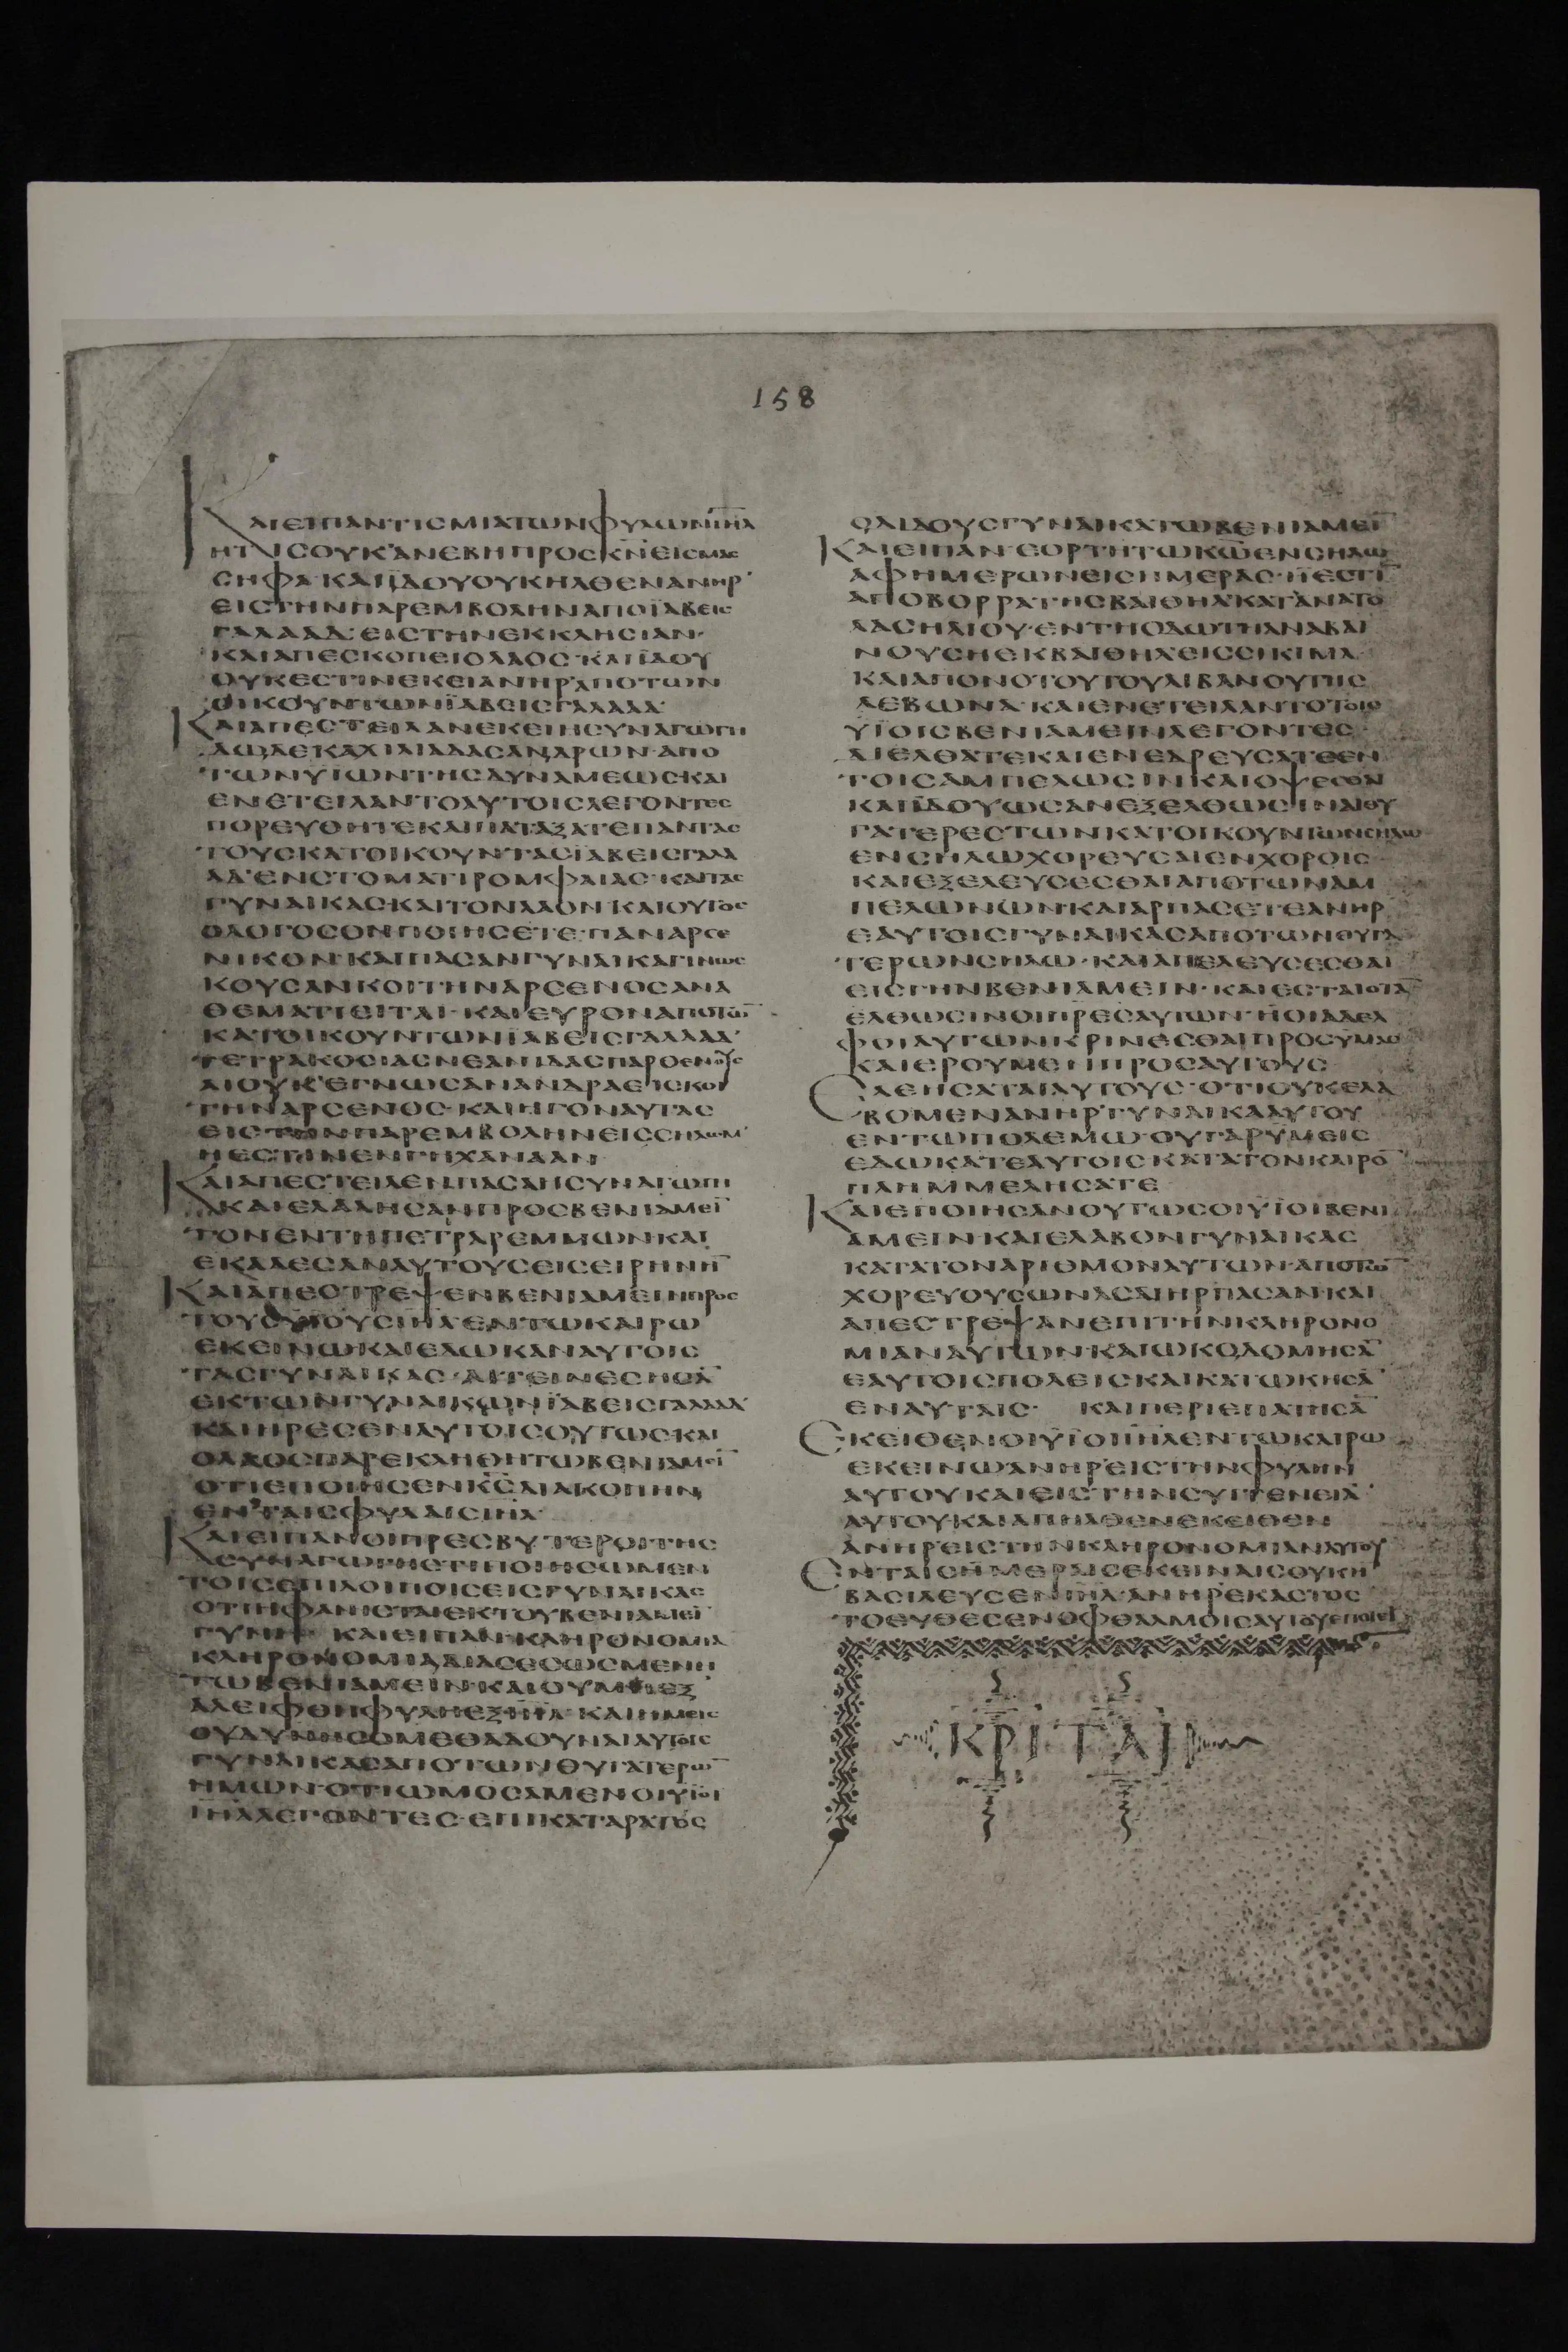 158
ΚΑΙΕΙΠΑΝΤΙCΜΙΑΤΩΝΦΥΛΩΝΙΗΛ
ΗΤΙCΟΥΚΑΝΕΒΗΠΡΟCΚΝΕΙCΜΑC
CΗΦΑ·ΚΑΙΪΔΟΥΟΥΚΗΛΘΕΝΑΝΗΡ
ΕΙCΤΗΝΠΑΡΕΜΒΟΛΗΝΑΠΟΪΑΒΕΙC
ΓΑΛΑΑΔ·ΕΙCΤΗΝΕΚΚΛΗCΙΑΝ·
ΚΑΙΑΠΕCΚΟΠΕΙΟΛΑΟC·ΚΑΙΪΔΟΥ
ΟΥΚΕCΤΙΝΕΚΕΙΑΝΗΡΑΠΟΤΩΝ
ΟΙΚΟΥΝΤΩΝΪΑΒΕΙCΓΑΛΑΑΔ·
ΚΑΙΑΠΕCΤΕΙΛΑΝΕΚΕΙΗCΥΝΑΓΩΓΗ
ΔΩΔΕΚΑΧΙΛΙΑΔΑCΑΝΔΡΩΝ·ΑΠΟ
ΤΩΝΥΙΩΝΤΗCΔΥΝΑΜΕΩC·ΚΑΙ
ΕΝΕΤΕΙΛΑΝΤΟΑΥΤΟΙCΛΕΓΟΝΤΕC
ΠΟΡΕΥΘΗΤΕΚΑΙΠΑΤΑΞΑΤΕΠΑΝΤΑC
ΤΟΥCΚΑΤΟΙΚΟΥΝΤΑCΪΑΒΕΙCΓΑΛΑ
ΑΔ·ΕΝCΤΟΜΑΤΙΡΟΜΦΑΙΑC·ΚΑΙΤΑC
ΓΥΝΑΙΚΑC·ΚΑΙΤΟΝΛΑΟΝ·ΚΑΙΟΥΤΟC
ΟΛΟΓΟCΟΝΠΟΙΗCΕΤΕ·ΠΑΝΑΡCΕ
ΝΙΚΟΝ·ΚΑΙΠΑCΑΝΓΥΝΑΙΚΑΓΙΝΩC
ΚΟΥCΑΝΚΟΙΤΗΝΑΡCΕΝΟCΑΝΑ
ΘΕΜΑΤΙΕΙΤΑΙ·ΚΑΙΕΥΡΟΝΑΠΟΤΩ̄
ΚΑΤΟΙΚΟΥΝΤΩΝΪΑΒΕΙCΓΑΛΑΑΔ·
ΤΕΤΡΑΚΟCΙΑCΝΕΑΝΙΔΑCΠΑΡΘΕΝΟΥC
ΑΙΟΥΚΕΓΝΩCΑΝΑΝΔΡΑΕΙCΚΟΙ
ΤΗΝΑΡCΕΝΟC·ΚΑΙΗΓΟΝΑΥΤΑC
ΕΙCΤΗΝΠΑΡΕΜΒΟΛΗΝΕΙCCΗΛΩΜ·
ΗΕCΤΙΝΕΝΓΗΧΑΝΑΑΝ·
ΚΑΙΑΠΕCΤΕΙΛΕΝΠΑCΑΗCΥΝΑΓΩΓΗ
ΚΑΙΕΛΑΛΗCΑΝΠΡΟCΒΕΝΙΑΜΕῙ
ΤΟΝΕΝΤΗΠΕΤΡΑΡΕΜΜΩΝ·ΚΑΙ
ΕΚΑΛΕCΑΝΑΥΤΟΥCΕΙCΕΙΡΗΝΗ̄
ΚΑΙΑΠΕCΤΡΕΨΕΝΒΕΝΙΑΜΕΙΝΠΡΟC
ΤΟΥCΥΙΟΥCΙΗΛ·ΕΝΤΩΚΑΙΡΩ
ΕΚΕΙΝΩ·ΚΑΙΕΔΩΚΑΝΑΥΤΟΙC
ΤΑCΓΥΝΑΙΚΑC·ΑΙΤΕΙΝΕCΗCᾹ
ΕΚΤΩΝΓΥΝΑΙΚΩΝΪΑΒΕΙCΓΑΛΑΑΔ·
ΚΑΙΗΡΕCΕΝΑΥΤΟΙCΟΥΤΩC·ΚΑΙ
ΟΛΑΟCΠΑΡΕΚΛΗΘΗΤΩΒΕΝΙΑΜΕῙ
ΟΤΙΕΠΟΙΗCΕΝΚ̄C̄ΔΙΑΚΟΠΗΝ
ΕΝΤΑΙCΦΥΛΑΙCΙΗΛ·
ΚΑΙΕΙΠΑΝΟΙΠΡΕCΒΥΤΕΡΟΙΤΗC
CΥΝΑΓΩΓΗCΤΙΠΟΙΗCΩΜΕΝ
ΤΟΙCΕΠΙΛΟΙΠΟΙCΕΙCΓΥΝΑΙΚΑC
ΟΤΙΗΦΑΝΙCΤΑΙΕΚΤΟΥΒΕΝΙΑΜΕῙ
ΓΥΝΗ· ΚΑΙΕΙΠΑΝ·ΚΛΗΡΟΝΟΜΙΑ
ΚΛΗΡΟΝΟΜΙΑΔΙΑCΕCΩCΜΕΝΗ
ΤΩΒΕΝΙΑΜΕΙΝ·ΚΑΙΟΥΜΗΕΞ
ΑΛΕΙΦΘΗΦΥΛΗΕΞΙΗΛ·ΚΑΙΗΜΕΙC
ΟΥΔΥΝΗCΟΜΕΘΑΔΟΥΝΑΙΑΥΤΟΙC
ΓΥΝΑΙΚΑCΑΠΟΤΩΝΘΥΓΑΤΕΡΩ̄
ΗΜΩΝ·ΟΤΙΩΜΟCΑΜΕΝΟΙΥΪΟΙ
ΙΗΛΛΕΓΟΝΤΕC·ΕΠΙΚΑΤΑΡΑΤΟC
ΟΔΙΔΟΥCΓΥΝΑΙΚΑΤΩΒΕΝΙΑΜΕῙ
ΚΑΙΕΙΠΑΝ·ΕΟΡΤΗΤΩΚΩ̄ΕΝCΗΛΩ
ΑΦΗΜΕΡΩΝΕΙCΗΜΕΡΑC·ΗΕCΤῙ
ΑΠΟΒΟΡΡΑΤΗCΒΑΙΘΗΛ·ΚΑΤΑΝΑΤΟ
ΛΑCΗΛΙΟΥ·ΕΝΤΗΟΔΩΤΗΑΝΑΒΑΙ
ΝΟΥCΗΕΚΒΑΙΘΗΛΕΙCCΙΚΙΜΑ·
ΚΑΙΑΠΟΝΟΤΟΥΤΟΥΛΙΒΑΝΟΥΤΗC
ΛΕΒΩΝΑ·ΚΑΙΕΝΕΤΕΙΛΑΝΤΟΤΟΙC
ΥΪΟΙCΒΕΝΙΑΜΕΙΝΛΕΓΟΝΤΕC·
ΔΙΕΛΘΑΤΕΚΑΙΕΝΕΔΡΕΥCΑΤΕΕΝ
ΤΟΙCΑΜΠΕΛΩCΙΝ·ΚΑΙΟΨΕCΘΑΙ
ΚΑΙΪΔΟΥΩCΑΝΕΞΕΛΘΩCΙΝΑΙΘΥ
ΓΑΤΕΡΕCΤΩΝΚΑΤΟΙΚΟΥΝΤΩΝCΗΛΩ
ΕΝCΗΛΩΧΟΡΕΥCΑΙΕΝΧΟΡΟΙC·
ΚΑΙΕΞΕΛΕΥCΕCΘΑΙΑΠΟΤΩΝΑΜ
ΠΕΛΩΝΩΝ·ΚΑΙΑΡΠΑCΕΤΕΑΝΗΡ
ΕΑΥΤΟΙCΓΥΝΑΙΚΑCΑΠΟΤΩΝΘΥΓΑ
ΤΕΡΩΝCΗΛΩ·ΚΑΙΑΠΕΛΕΥCΕCΘΑΙ
ΕΙCΓΗΝΒΕΝΙΑΜΕΙΝ·ΚΑΙΕCΤΑΙΟΤᾹ
ΕΛΘΩCΙΝΟΙΠΡΕCΑΥΤΩΝ·ΗΟΙΑΔΕΛ
ΦΟΙΑΥΤΩΝΚΡΙΝΕCΘΑΙΠΡΟCΥΜΑC
ΚΑΙΕΡΟΥΜΕΝΠΡΟCΑΥΤΟΥC·
ΕΛΕΗCΑΤΑΙΑΥΤΟΥC·ΟΤΙΟΥΚΕΛΑ
ΒΟΜΕΝΑΝΗΡΓΥΝΑΙΚΑΑΥΤΟΥ
ΕΝΤΩΠΟΛΕΜΩ·ΟΥΓΑΡΥΜΕΙC
ΕΔΩΚΑΤΕΑΥΤΟΙCΚΑΤΑΤΟΝΚΑΙΡΟ̄
ΠΛΗΜΜΕΛΗCΑΤΕ
ΚΑΙΕΠΟΙΗCΑΝΟΥΤΩCΟΙΥΪΟΙΒΕΝΙ
ΑΜΕΙΝ·ΚΑΙΕΛΑΒΟΝΓΥΝΑΙΚΑC
ΚΑΤΑΤΟΝΑΡΙΘΜΟΝΑΥΤΩΝ·ΑΠΟΤΩ̄
ΧΟΡΕΥΟΥCΩΝΑCΔΙΗΡΠΑCΑΝ·ΚΑΙ
ΑΠΕCΤΡΕΨΑΝΕΠΙΤΗΝΚΛΗΡΟΝΟ
ΜΙΑΝΑΥΤΩΝ·ΚΑΙΩΚΟΔΟΜΗCᾹ
ΕΑΥΤΟΙCΠΟΛΕΙC·ΚΑΙΚΑΤΩΚΗCᾹ
ΕΝΑΥΤΑΙC· ΚΑΙΠΕΡΙΕΠΑΤΗCᾹ
ΕΚΕΙΘΕΝΟΙΥΪΟΙΙΗΛΕΝΤΩΚΑΙΡΩ
ΕΚΕΙΝΩΑΝΗΡΕΙCΤΗΝΦΥΛΗΝ
ΑΥΤΟΥΚΑΙΕΙCΤΗΝCΥΓΓΕΝΕΙᾹ
ΑΥΤΟΥ·ΚΑΙΑΠΗΛΘΕΝΕΚΕΙΘΕΝ
ΑΝΗΡΕΙCΤΗΝΚΛΗΡΟΝΟΜΙΑΝΑΥΤΟΥ
ΕΝΤΑΙCΗΜΕΡΑΙCΕΚΕΙΝΑΙCΟΥΚΗ̄
ΒΑCΙΛΕΥCΕΝΙΗΛ·ΑΝΗΡΕΚΑCΤΟC
ΤΟΕΥΘΕCΕΝΟΦΘΑΛΜΟΙCΑΥΤΟΥΕΠΟΙΕΙ
ΚΡΙΤΑΙ